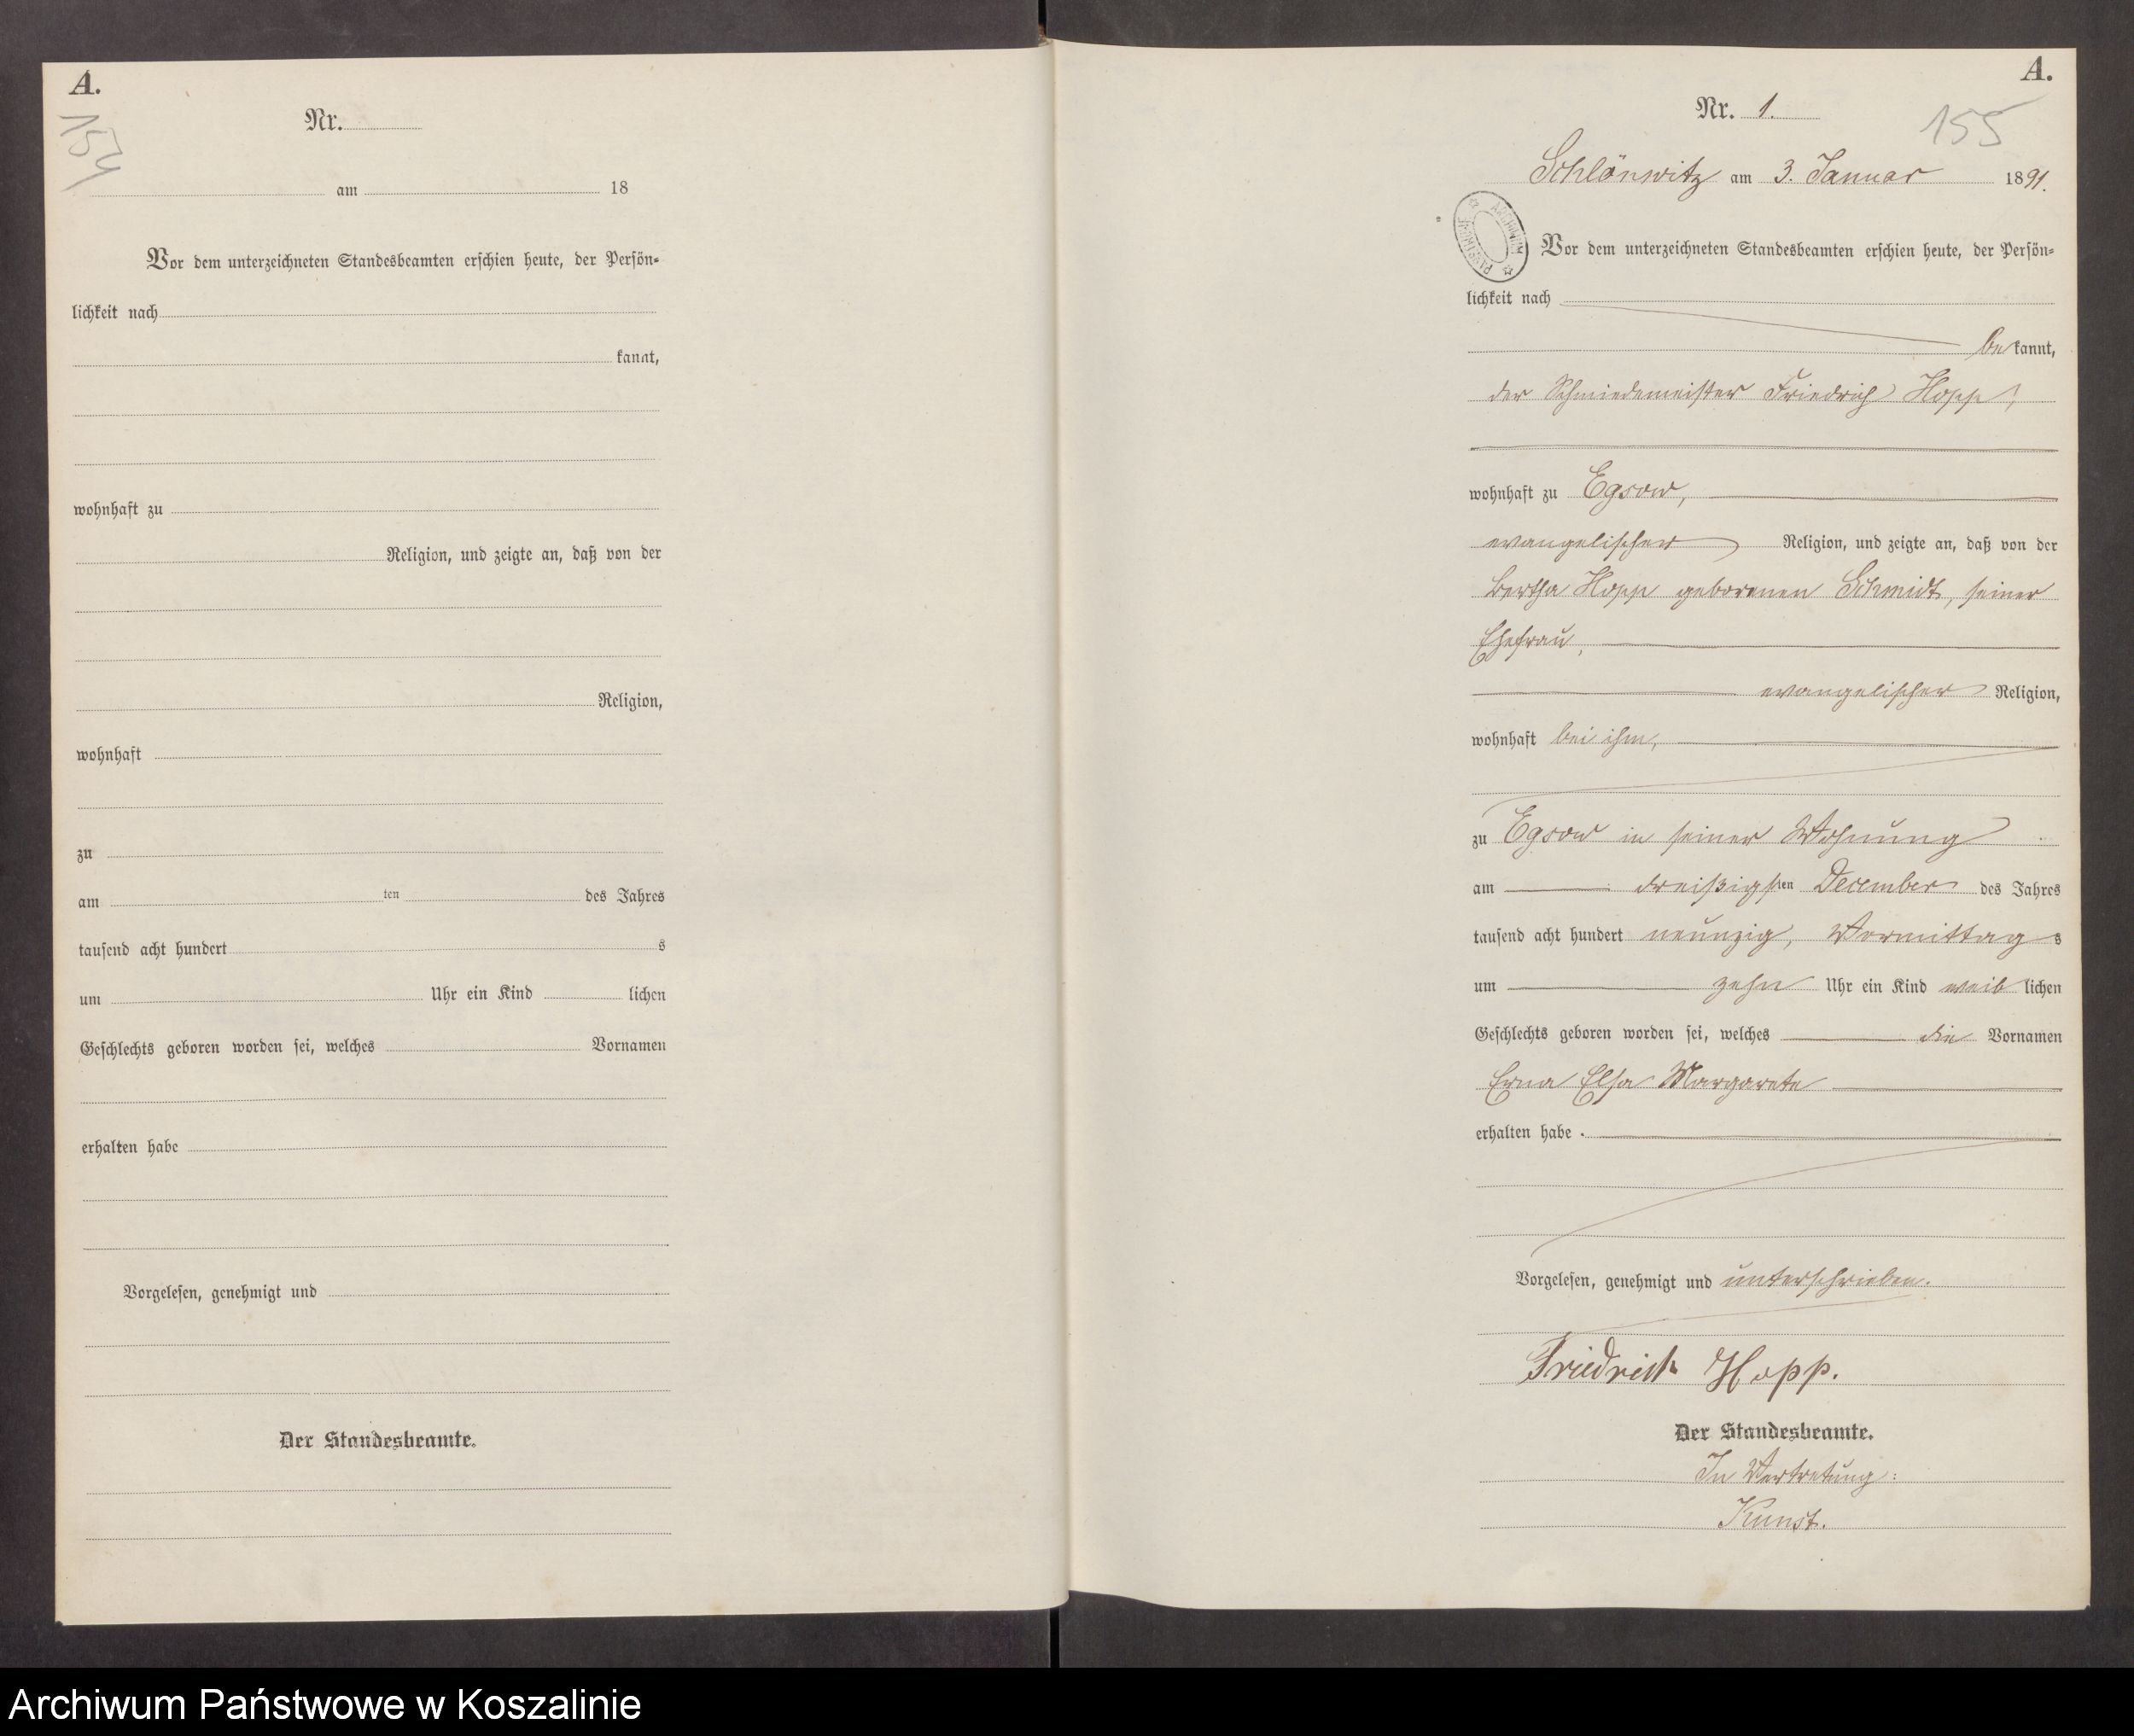 A.
154
Nr.
am 18
Vor dem unterzeichneten Standesbeamten erschien heute, der Persön-
lichkeit nach
kannt,
wohnhaft zu
Religion, und zeigte an, daß von der
Religion,
wohnhaft
zu
am ten des Jahres
tausend acht hundert s
um Uhr ein Kind lichen
Geschlechts geboren worden sei, welches Vornamen
erhalten habe
Vorgelesen, genehmigt und
Der Standesbeamte.
A.
Nr. 1.
155
Schlönwitz am 3. Januar 1891.
ARCHIWUM PAŃSTWOWE
Vor dem unterzeichneten Standesbeamten erschien heute, der Persön-
lichkeit nach
bekannt,
der Schmiedemeister Friedrich Hopp,
wohnhaft zu Egsow,
evangelischer Religion, und zeigte an, daß von der
Bertha Hopp geborenen Schmidt, seiner
Ehefrau,
evangelischer Religion,
wohnhaft bei ihm,
zu Egsow in seiner Wohnung
am dreißigsten December des Jahres
tausend acht hundert neunzig, Vormittags
um zehn Uhr ein Kind weiblichen
Geschlechts geboren worden sei, welches die Vornamen
Erna Elsa Margarete
erhalten habe.
Vorgelesen, genehmigt und unterschrieben.
Friedrich Hopp.
Der Standesbeamte.
In Vertretung:
Kunst.
Archiwum Państwowe w Koszalinie